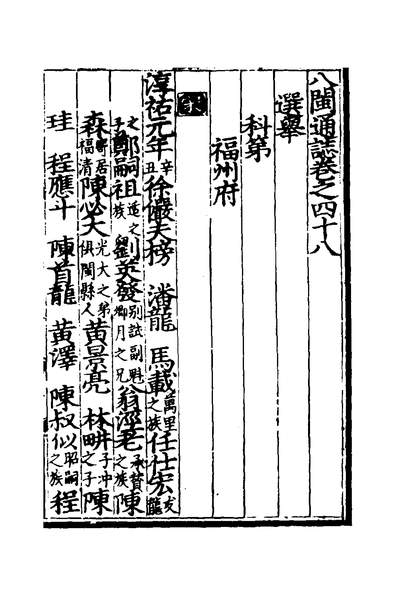 八閩通誌卷之四十八
選舉
科第
福州府
宋
淳祐元年辛丑徐儼夫榜 潘龍 馬載萬里之族任仕宏友龍
之子鄭嗣祖適之族劉英發別試副魁鄉月之兄翁澄老承贊之族陳
森寄居福清陳必大光大之弟俱閩縣人黃景亮 林畊子冲之子陳
珪 程應斗 陳首龍 黃澤 陳叔似昭嗣之族程